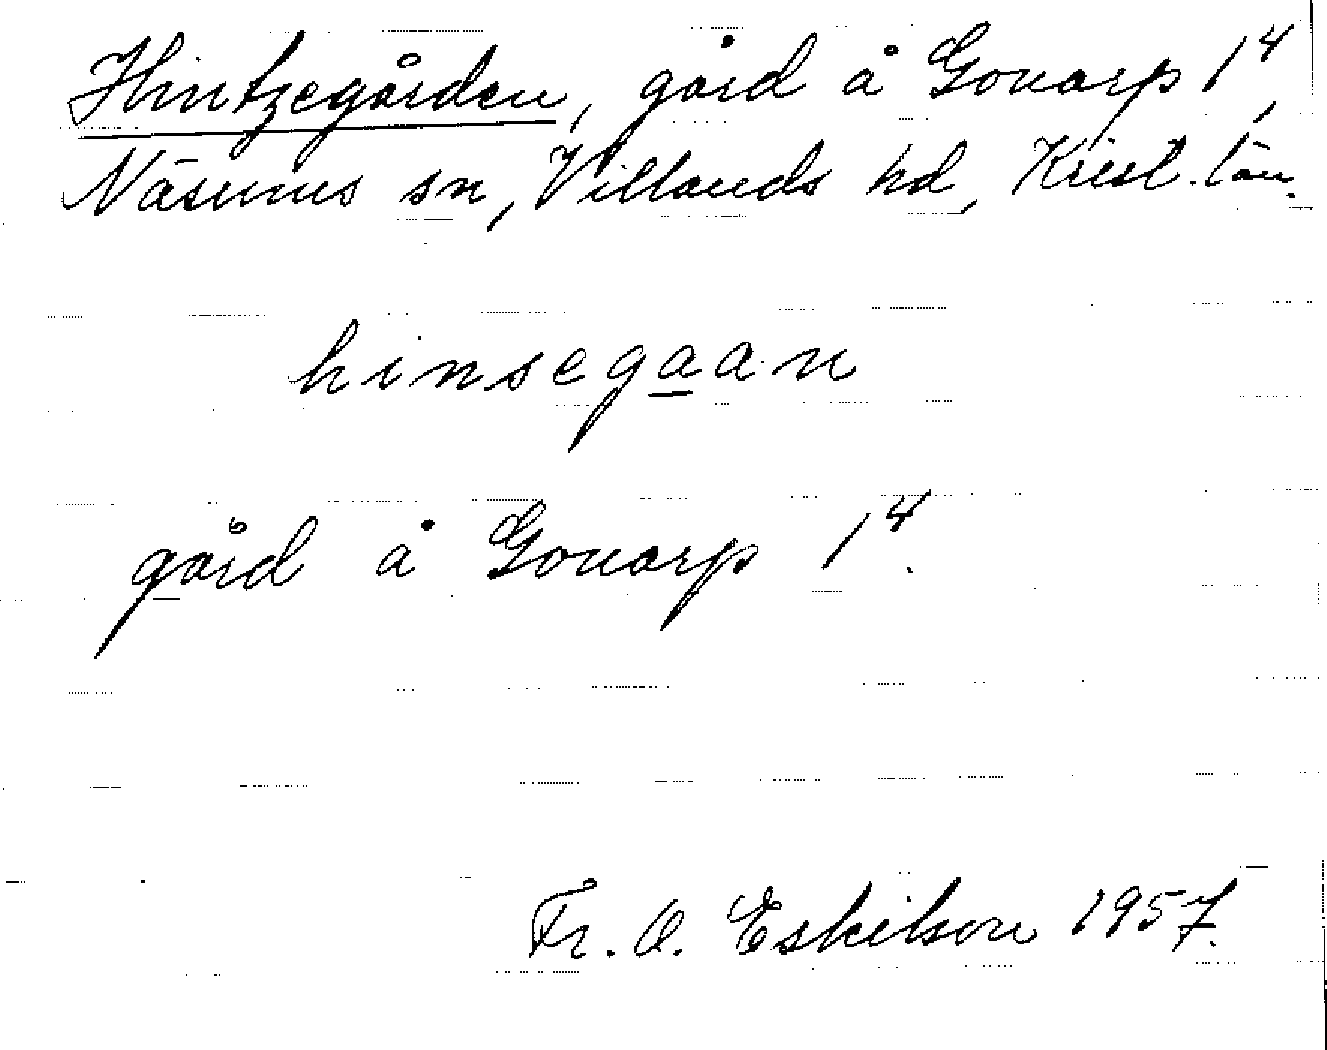 Hintzegården, gård å Gonarp 1⁴,
Näsums sn, Villands hd, Krist. län.
hinsegaan
gård å Gonarp 1⁴.
Fr. O. Eskilson 1957.